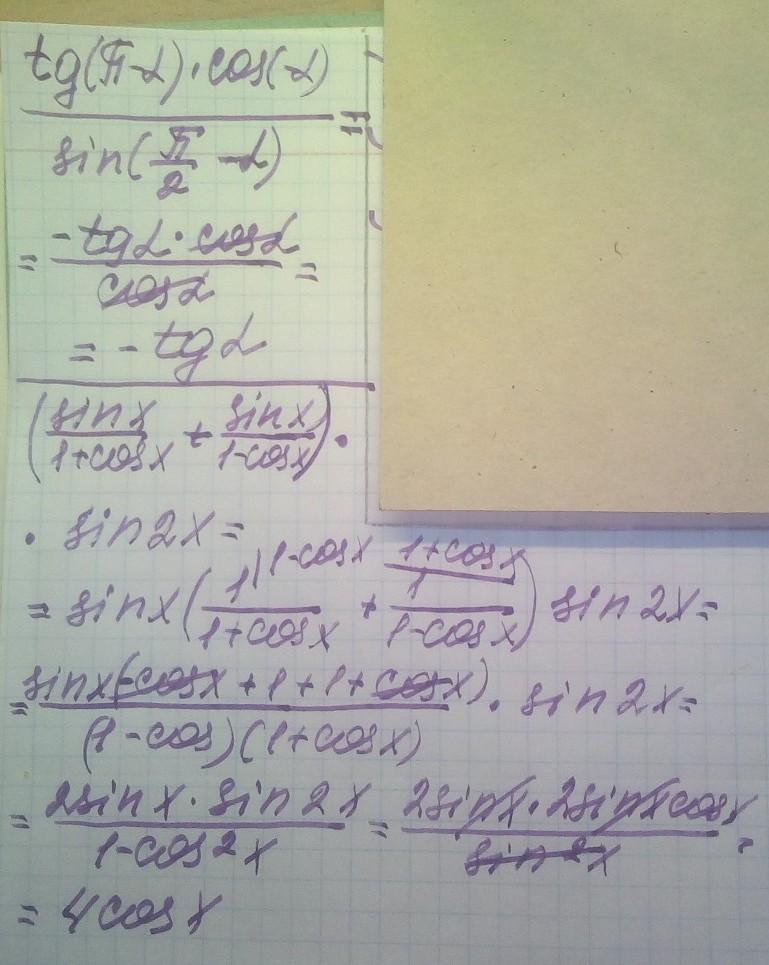 tg(π-α)·cos(-α)
sin(π/2 -α) =
= -tgα·cosα / cosα =
= -tgα
(sinx / 1+cosx + sinx / 1-cosx)·
· sin2x =
1-cosx 1+cosx
= sinx(1 / 1+cosx + 1 / 1-cosx) sin2x =
= sinx(-cosx + 1 + 1 + cosx) / (1-cos)(1+cosx) · sin2x =
= 2sinx·sin2x / 1-cos²x = 2sinx·2sinxcosx / sin²x =
= 4cosx